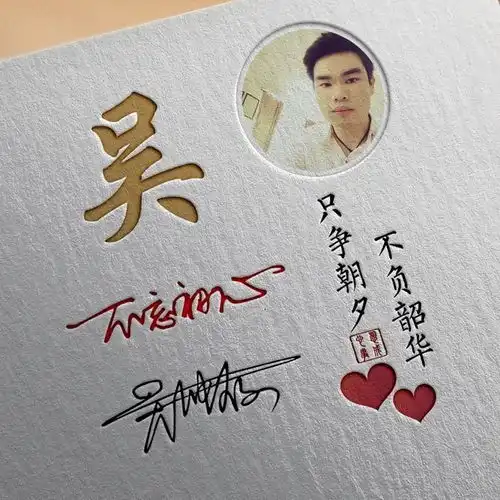 吴
不忘初心
吴
只争朝夕
不负韶华